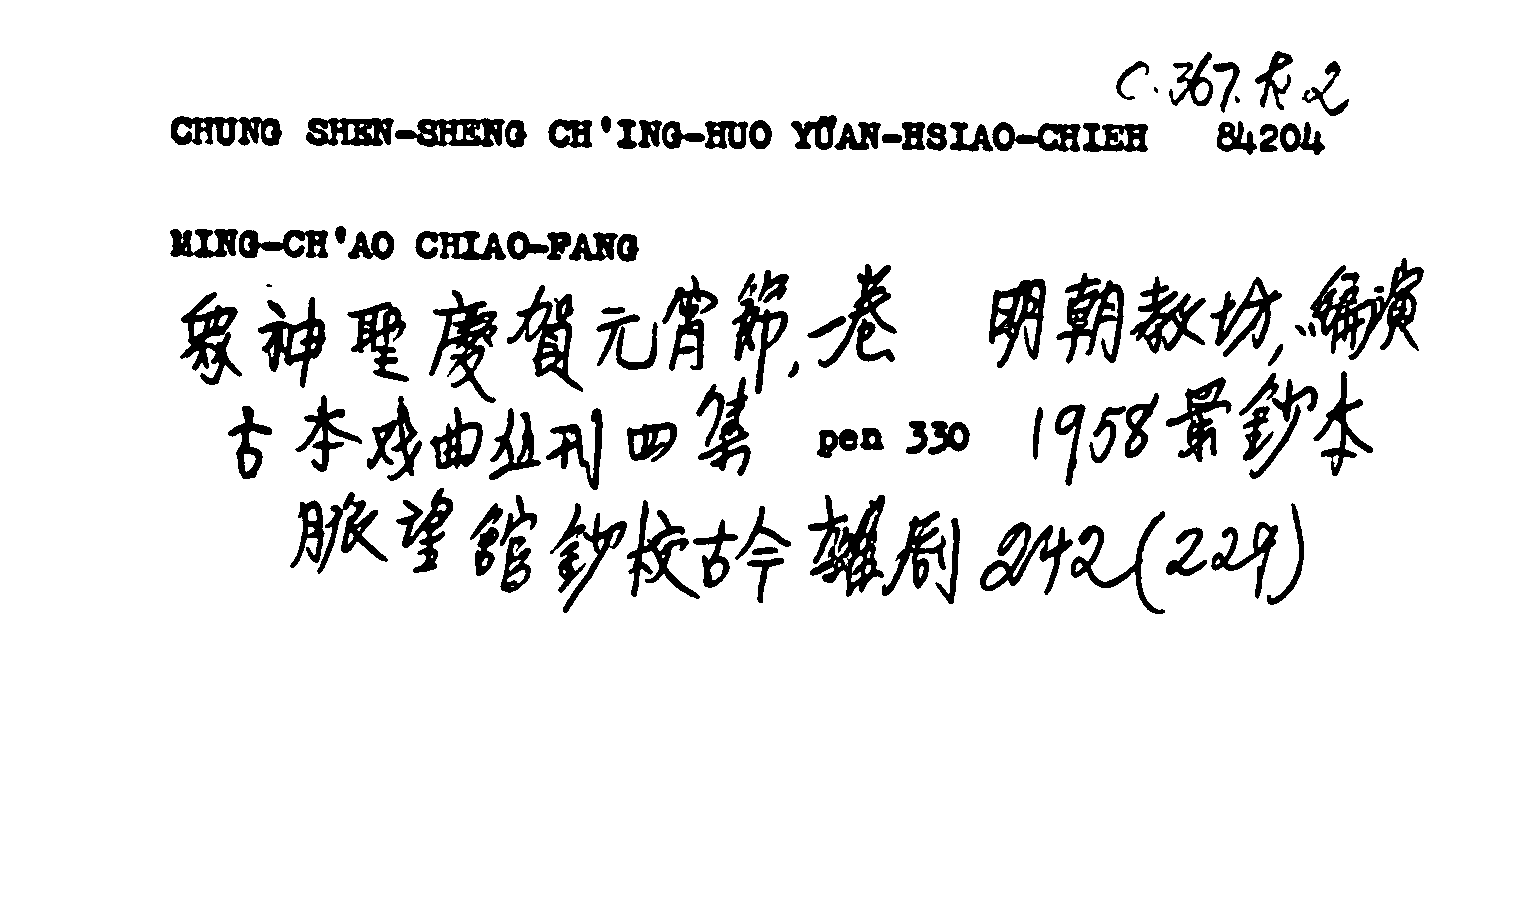 C.367.尤.2
CHUNG SHEN-SHENG CH'ING-HUO YÜAN-HSIAO-CHIEH 84204
MING-CH'AO CHIAO-FANG
眾神聖慶賀元宵節,一卷 明朝教坊,編演
古本戏曲丛刊四集 pen 330 1958景鈔本
脈望館鈔校古今雜剧242(229)